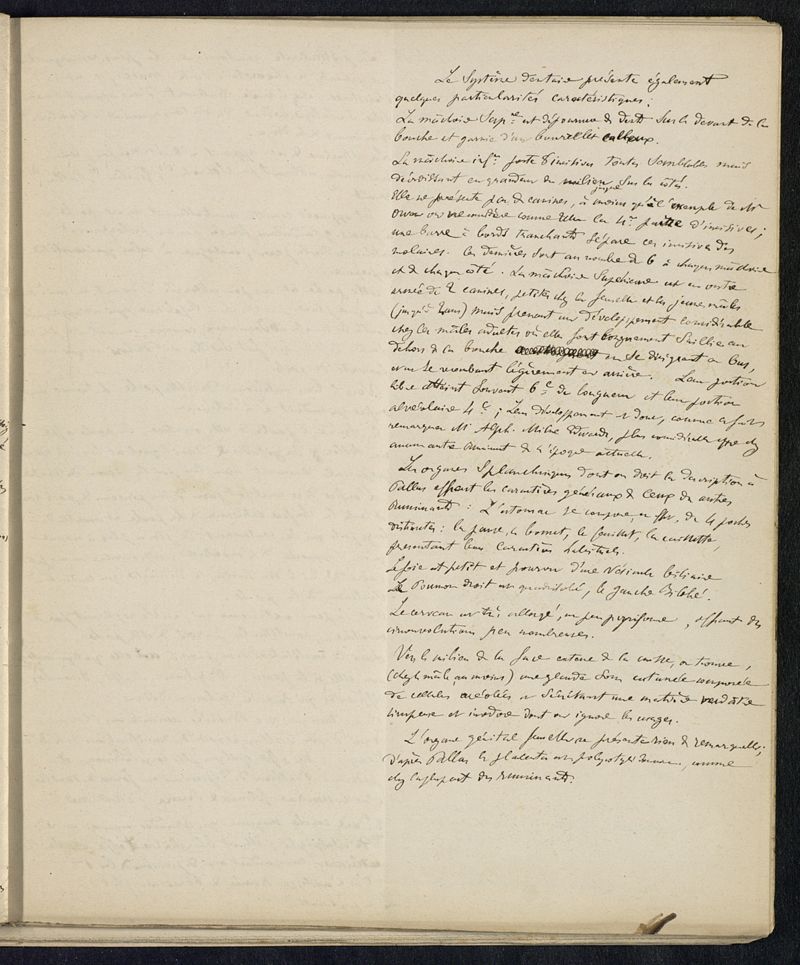 Le Système dentaire présente également
quelques particularités caractéristiques :
La mâchoire Sup.re est dépourvue de dents sur le devant de la
bouche et garnie d'un bourrelet calleux.
La mâchoire inf.re porte 8 incisives toutes semblables mais
décroissant en grandeur du milieu jusque sur les côtés.
Elle ne présente pas de canines, à moins qu'à l'exemple de Mr
Owen on ne considère comme telle la 4e paire d'incisives ;
une barre à bords tranchants sépare ces incisives des
molaires. Ces dernières sont au nombre de 6 à chaque mâchoire
et de chaque côté. La mâchoire Supérieure est en outre
armée de 2 canines, petites chez la femelle et les jeunes mâles
(jusqu'à 2 ans) mais prenant un développement considérable
chez les mâles adultes où elles font longuement saillie en
dehors de la bouche en se dirigeant en bas,
et en se recourbant légèrement en arrière. Leur portion
libre atteint souvent 6 c. de longueur et leur portion
alvéolaire 4 c. ; leur développement est donc, comme le fait
remarquer Mr Alph. Milne Edwards, plus considérable que chez
aucun autre Ruminant de l'époque actuelle.
Les organes Splanchniques dont on doit la description à
Pallas offrent les caractères généraux de ceux des autres
Ruminants : L'estomac se compose, en effet, de 4 poches
distinctes : la panse, le bonnet, le feuillet, la caillette,
présentant leurs caractères habituels.
Le foie est petit et pourvu d'une vésicule biliaire
Le Poumon droit est quadrilobé, le gauche Bilobé.
Le cerveau est très allongé, un peu pyriforme, offrant des
circonvolutions peu nombreuses.
Vers le milieu de la face externe de la cuisse, on trouve,
(chez le mâle, au moins) une glande sous cutanée composée
de cellules accolées et sécrétant une matière verdâtre
sirupeuse et inodore dont on ignore les usages.
L'organe génital femelle ne présente rien de remarquable ;
d'après Pallas le placenta est polycotylédonaire, comme
chez la plupart des ruminants.